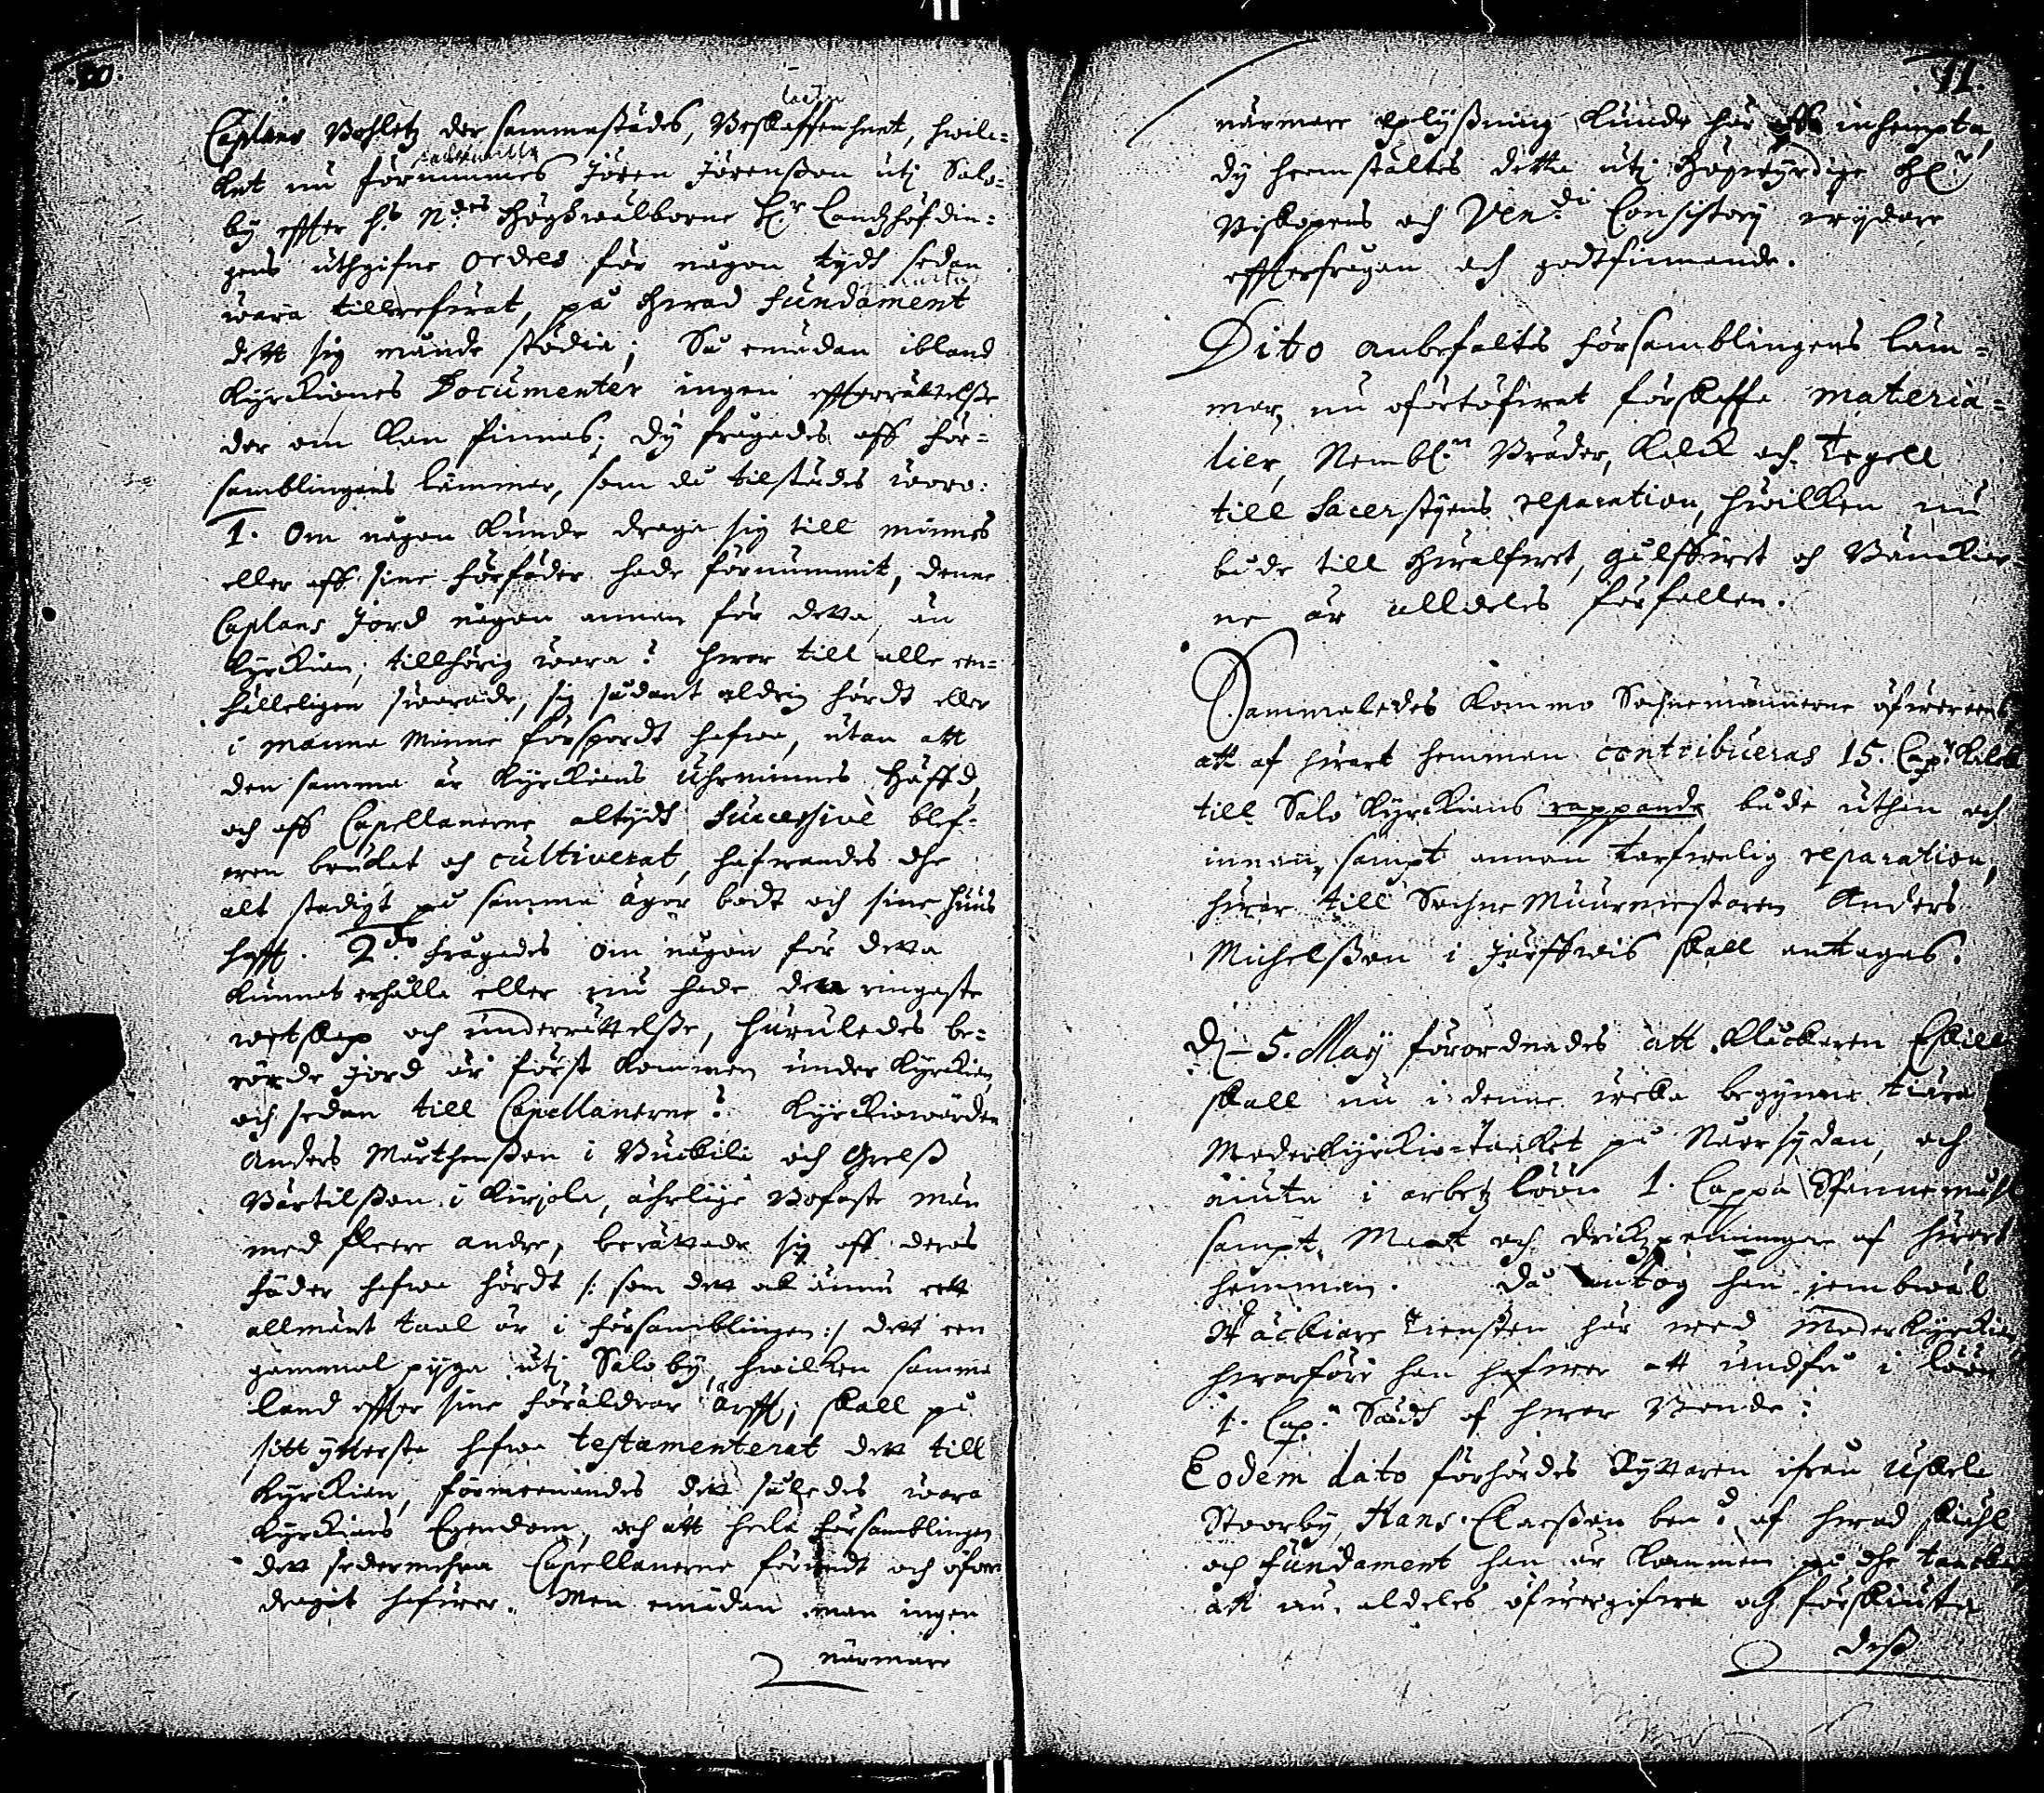 Caplans Bohletz der sammastädes, Beskaffenheet, hwil=
ket nu förnummes Jören Jörensson uti Salo=
by effter H:s N:des Höghwälborne H:r Landzhöfdin=
gens uthgifne Ordres för någon tydh sedan
wara tillrefwat, på hwad fundament
dett sig månde stödia; Så emädan ibland
Kyrckiones Documenter ingen effterrättelsse
der om kan finnas; Dy frågades aff för=
samblingens lämmar, som då tilstädes woro:
1. Om någon kunde draga sig till minnes
eller aff sine förfäder hade förnummit, denne
Caplans Jord någon annan för detta, än
Kyrckian, tillhörig wara? Hwar till alle en=
hälleligen swarade, sig sådant aldrig hördt eller
i manna minne försport hafwa, utan att
den samma är Kyrckians Uhrminnes Häffd,
och aff Capellanerne altydh successivè blef=
wen brukat och cultiverat, hafwandes dhe
alt stadigt på samma ägor bodt och sine huus
hafft. 2:do frågades om någon för detta
kunnat erhålla eller nu hade den ringaste
wetskap och underrättelsse, huruledes be=
rörde Jord är först kommen under Kyrckian
och sedan till Capellanerne? Kyrckiowärden
Anders Mårthensson i Vuckili och Grels
Bärtilsson i Kirjola, ährlige Bofaste män
med fleere andre, berättade sig aff deras
fäder hafwa hördt /: som dett ok ännu ett
allmänt taal är i församblingen :/ dett een
gammal pyga uti Saloby, hwilken samma
land effter sine föräldrar ärfft; skall på
sitt ytterste hafwa testamenterat dett till
Kyrckian, förmeenandes dett således wara
Kyrckians Egendom, och att heela församblingen
dett sedermehra Capellanerne förundt och ofwer
dragit hafwer. Men emädan man ingen
närmare
11.
närmare uplyßning kunde här aff inhempta,
dy heemstältes detta uti Högwyrdige H:r
Biskopens och Ven:di Consistory wydare
effterfrågan och godtfinnande.
Dito anbefaltes församblingens läm=
mar nu oförtöfwat förskaffa materia=
lier, Nembl:n Bräder, Kalck och Tegell
till Sacerstyens reparation, hwilken nu
både till Hwalfwet, gulffwet och Bänckiar
ne är alldeles förfallen.
Sammaledes komma Sochnemännerne öfwereens,
att af hwart hemman contribueras 15. Cap:r Kalck
till Salo Kyrckians rappande både uthan och
innan, sampt annan tarfwelig reparation,
hwar till Sochne Muurmestaren Anders
Michelsson i Järffwis skall antagas.
D. 5. May förordnades att Klåckaren Eskill
skall nu i denne weka begynna tiära
Moderkyrckiotaaket på Norrsydan, och
niuta i arbetz löön 1. Cappa Spannemåhl
sampt Maat och drickzpenningar af hwart
hemman. Då antog han jembwäl
Stäckiare tiensten här wed Moderkyrckian
hwarföre han hafwer att undfå i löön
1. Cap:a Sädh af hwar Bonde:
Eodem dato förhördes Ryttaren ifrån Uskela
Stoorby, Hans Claesson ben:d af hwad skiähl
och fundament han är kommen på dhe tanckar
att nu aldeles öfwergifwa och förskiuta
dess